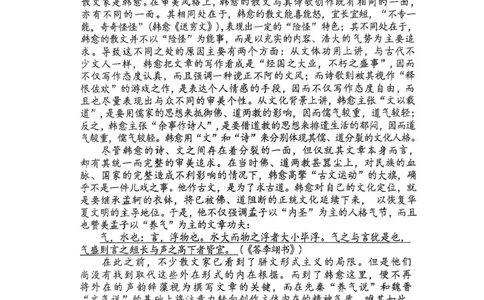 散文家是韩愈。在审美风格上，韩愈的散文与其诗歌创作既有相同的一面，
亦有不同的一面。其相同处在于，韩愈的散文能喜能怒，宜长宜短，“不专一
能，奇奇怪怪”（韩愈《送穷文》），表现出一定的“险怪”特色；其不同处在于，
韩愈的散文并不以“险怪”为能事，而是以充实的内容、浩大的气势为主要追
求。导致这不同之处的原因主要有两个方面：从文体功用上讲，与古代不
少文人一样，韩愈把文章的写作看成是“经国之大业，不朽之盛事”，因而
不仅写作态度认真，而且强调一种诡正不阿的文风；而诗歌则被其视作“释
恨佐欢”的游戏之作，是表达个人情感的手段，因而不仅写作态度自由，而
且也尽量表现出与众不同的审美个性。从文化背景上讲，韩愈主张“文以载
道”，是要用儒家的思想来抵御佛、道两教的影响，因而儒气较重，道气较轻；
反之，韩愈主张“余事作诗人”，是要借道教的思想来排遣生活的郁闷，因而道
气较重，儒气较轻。韩愈用“文”和“诗”来分别体现其儒、道分裂的文化人格。
尽管韩愈的诗、文之间存在着分裂的一面，但仅就其文章本身而言，
却有其统一而完整的审美追求。在当时佛、道两教甚嚣尘上，对民族的血
脉、国家的完整造成不利影响的情况下，韩愈高擎“古文运动”的大旗，确
乎不是一件儿戏之事。他作古文，是为了求古道。韩愈对自己的文化定位，就
是要继承孟轲的衣钵，将已被佛、道阻断的正统文化延续下来， 以恢复华
夏文明的主导地位。于是，他不仅强调孟子以“内圣”为主的人格气节，而且
也赞美孟子以“养气”为主的文章功夫：
气，水也；言，浮物也。水大而物之浮者大小毕浮。气之与言犹是也，
气盛则言之短长与声之高下者皆宜。（《答李翊书》）
在此之前，不少散文家已看到了骈文形式主义的局限。但是他们
尚没有找到取代这些外在形式的内在根据。而到了韩愈这里，便不再
将外在的声韵骈藻视为撰写文章的关键，而在先秦“养气说”和魏晋